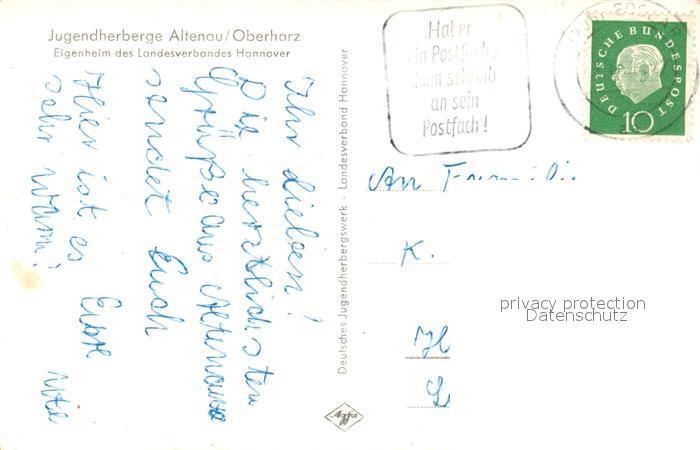 Jugendherberge Altenau/Oberharz
Eigenheim des Landesverbandes Hannover
Ihr Lieben!
Die herzlichsten
Grüße aus Altenau
sendet Euch
Hier ist es Eure
sehr warm! Ute
Deutsches Jugendherbergswerk · Landesverband Hannover
Agfa
Hat er
ein Postfach,
dann schreib
an sein
Postfach!
DEUTSCHE BUNDESPOST
10
An Familie
K.
privacy protection
Datenschutz